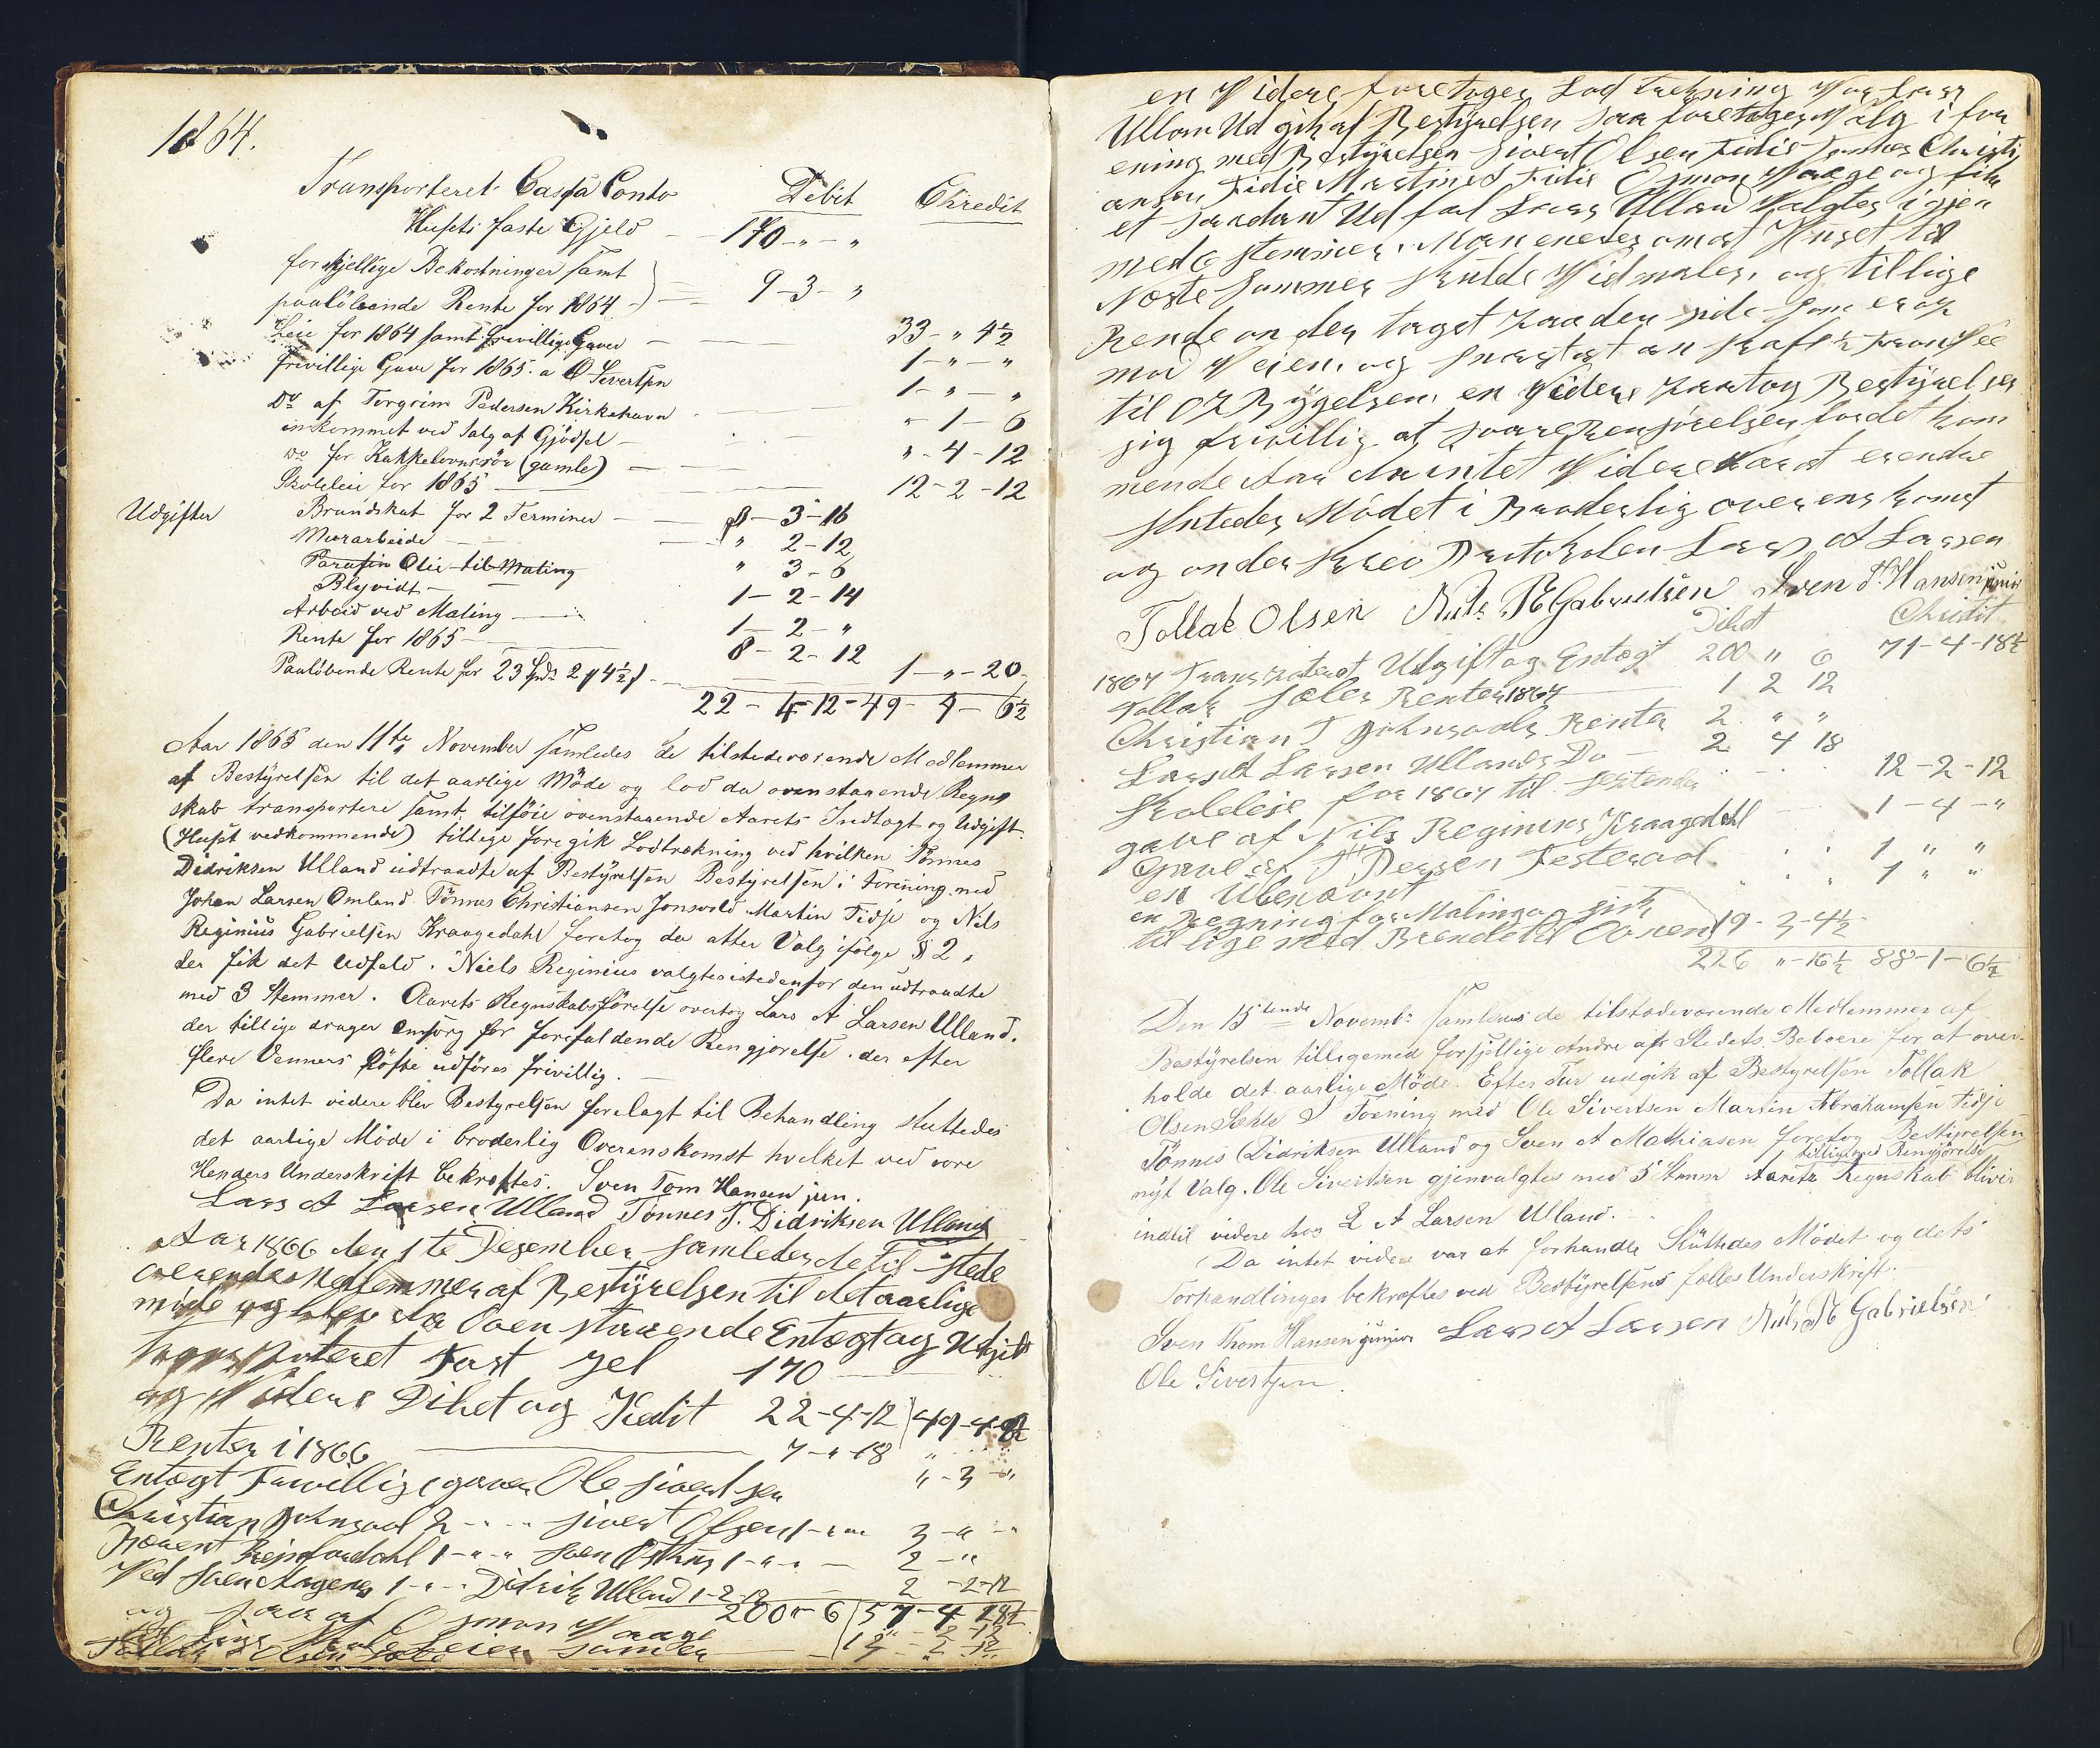 1864.
Transporteret Cassa Conto Debit Chredit
Husets faste Gjeld 170 - " - "
forskjellige Bekostninger samt
paalöbende Rente for 1864 - 9 - 3 - "
Leie for 1864 samt frivillige Gaver 33 - " 4½
frivillige Gave for 1865. a O Sivertsen 1 - " - "
Do af Torgrim Pedersen Kirkehavn 1 - " - "
inkommet ved Salg af Gjödsel " - 1 - 6
do for Kakkelovnsrör (gamle) " - 4 - 12
Skoleleie for 1865 12 - 2 - 12
Udgifter Brandskat for 2 Terminer 8 - 3 - 16
Murarbeide " 2 - 12
Parafin Olie til Maling " 3 - 6
Blyvidt 1 - 2 - 14
Arbeid ved Maling 1 - 2 - "
Rente for 1865 8 - 2 - 12
Paalöbende Rente for 23 Spd 2 4½ 1 - " - 20
22 - 4 - 12 - 49 - 4 - 6½
Aar 1865 den 11te November samledes de tilstedeværende Medlemmer
af Bestÿrelsen til det aarlige Möde og lod da ovenstaaende Regns
skab transportere samt tilföie ovenstaaende Aarets Indtægt og Udgift
(Huset vedkommende) tillige foregik Lodtrækning ved hvilken Tönnes
Didriksen Ulland udtraadte af Bestÿrelsen Bestÿrelsen i Forening med
Johan Larsen Omland Tönnes Christiansen Jonsvold Martin Tidje og Nils
Reginius Gabrielsen Kraagedahl foretog da atter Valg ifölge § 2,
der fik det Udfald. Niels Reginius valgtes istedenfor den udtraadte
med 3 Stemmer. Aarets Regnskabsförelse overtog Lars A Larsen Ulland.
der tillige drager Omsorg for forefaldende Rengjörelse. der efter
flere Venners Löfte udföres frivillig.
Da intet videre blev Bestyrelsen forelagt til Behandling sluttedes
det aarlige Möde i broderlig Overenskomst hvilket ved vore
Henders Underskrift bekræftes. Sven Tom Hansen jun.
Lars A Larsen Ulland Tönnes T. Didriksen Ulland
Aar 1866 den 1te Desember samledes de til stede
værende Medlemmer af Bestÿrelsen til det aarlige
möde og blev da Oven staaende Entægt og Udgift
transpoteret Fast gel 170
og Videre Dibet og Kredit 22-4-12 49-4-6½
Renter i 1866 7 - " 18 " "
Entægt Frivillige gaver Ole sivertsen " - 3 - "
Christian Johnsvol 2 - " - sivert Olsen 1 - " " 3 - " "
1 - " - " 1 - " - " 2 - "
Ved Sven Aagenes 1 - " - Didrik Ulland 1-2-12 2 - 2-12
og saa af Osmon Vaage 200 " - 6 57-4 18½
en Videre foretoges Lod trekning Var Lars
Ulland Ud gik af Bestÿrelsen saa foretoges Valg i for
ening med Bestÿrelsen Sivert Olsen Tidie Tønnes Christi
ansen Tidie Martines Tidie Osmon Vaage og fik
et saadant Ud fal Lars Ulland Valgtes i gjen
med 6 stemmer. Man enedes om at Huset til
Næste sommer skulde Vid males, og tillige
Rende on der taget paa den side som er op
mod Veien, og snarest an skaft
til Byggelsen, en Videre paatog Bestÿrelsen
sig frivillig at svare Rengjörelsen for det kom
mende Aar da intet Videre var at erendre
sluttedes Mödet i Broderlig overens komst
og onder skrev Protokolen Lars A Larsen
Tollak Olsen Nils R Gabrielsen Sven T. Hansen junior
Dibet Chredit
1867 Transpoteret Udgift og Entægt 200 " 6 71-4-18½
Tollak Sæles Renter 1867 1 2 12
Christian T Johnsvols Renta 2 " "
Lars A Larsen Ullands Do 2 4 18
Skoleleie for 1867 til 12-2-12
gave af Nils Reginius Kraagedahl 1-4-"
Gave af Festerad 1 " "
en Übenævnt 1 " "
en Regning for Maling og
til lige med Brende til Ovnen 19-3-4½
226 " -16½ 88-1-6½
Den 15tende Novemb: samledes de tilstedeværende Medlemmer af
Bestÿrelsen tilligemed forsjellige Andre af Stedets Beboere for at over-
holde det aarlige Möde. Efter Tur udgik af Bestyrelsen Tollak
Olsen Sæhle I Forening med Ole Sivertsen Martin Abrahamsen Tidje
Tönnes Didriksen Ulland og Sven A Mathiasen foretog Bestÿrelsen
tilligemed Rengjörelse
nÿt Valg. Ole Sivertsen gjenvalgtes med 5 Stemm Aarets Regnskab bliver
indtil videre hos L A Larsen Ulland.
Da intet videre var at forhandle Slüttedes Mödet og dets
Forhandlinger bekræftes ved Bestÿrelsens fælles Underskrift.
Sven Thom Hansen jünior Lars A Larsen Nils R Gabrielsen
Ole Sivertsen.